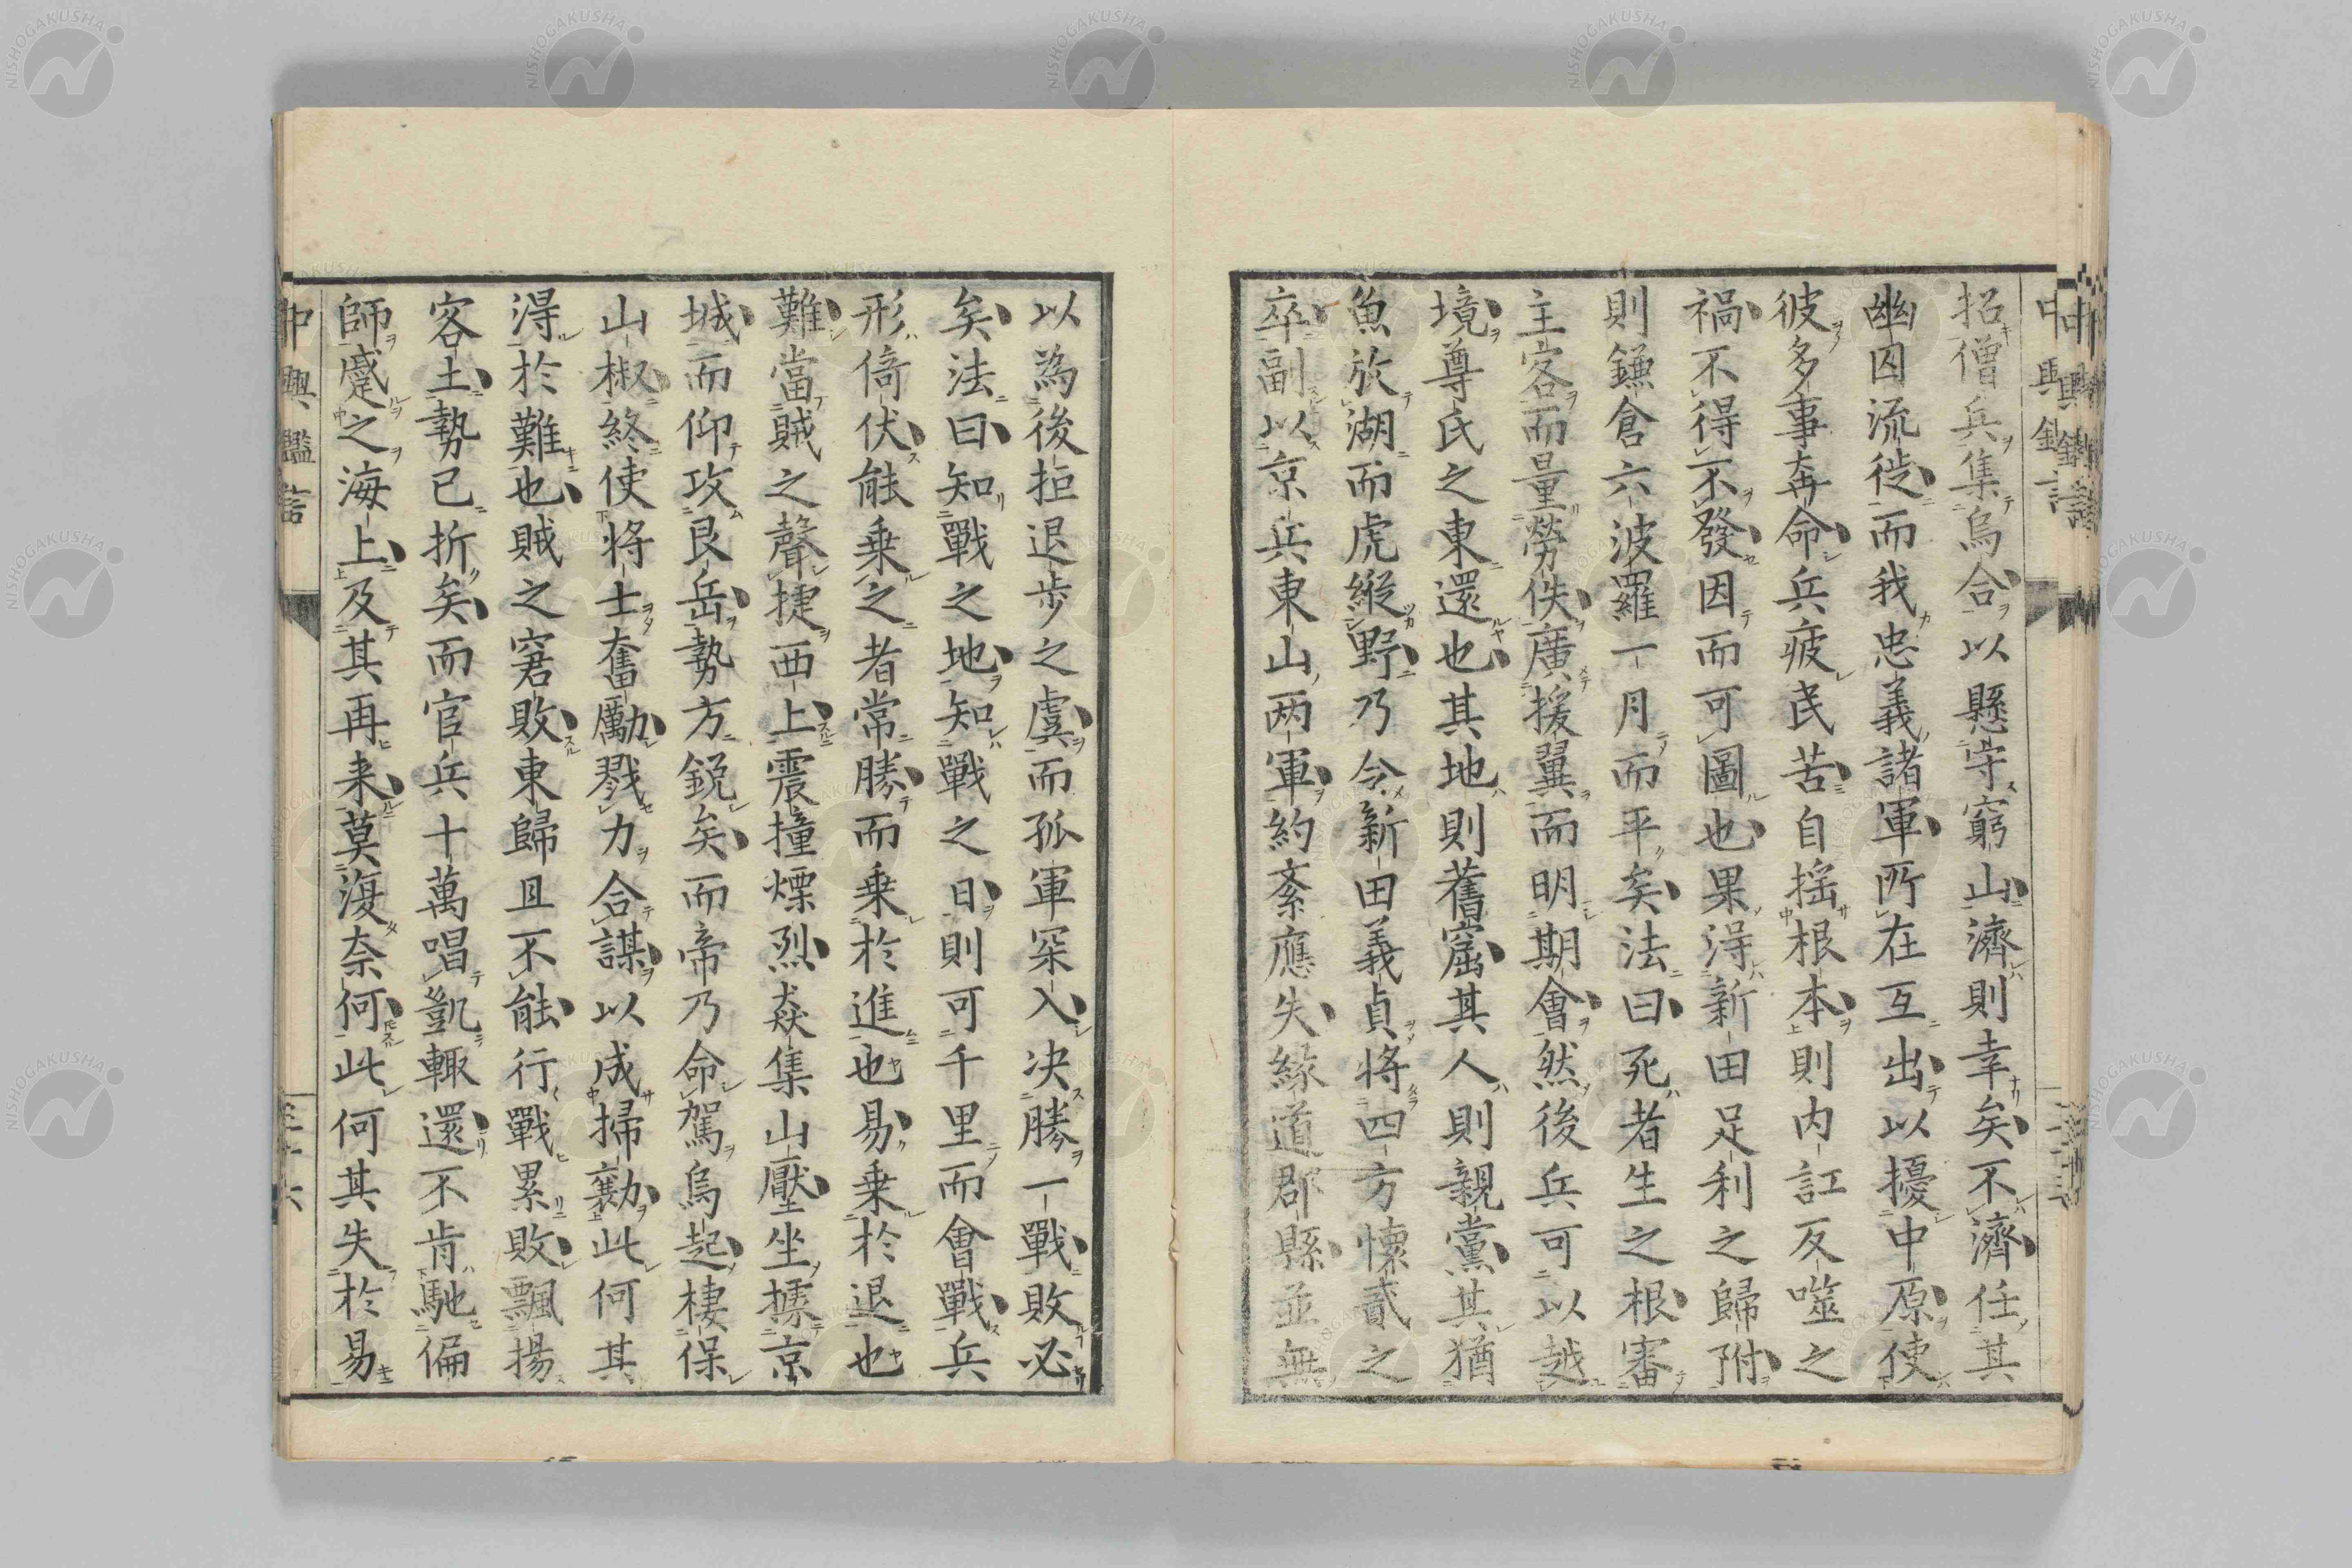 招僧兵集烏合以懸守窮山濟則幸矣不濟任其
幽囚流徙而我忠義諸軍所在互出以擾中原使
彼多事奔命兵疲民苦自揺根本則内訌反噬之
禍不得不發因而可圖也果得新田足利之歸附
則鎌倉六波羅一月而平矣法曰死者生之根審
主客而量勞佚廣援翼而明期會然後兵可以越
境尊氏之東還也其地則舊窟其人則親黨其猶
魚放湖而虎縱野乃令新田義貞將四方懷貳之
卒副以京兵東山両軍約紊應失緣道郡縣並無
以為後拒退步之虞而孤軍罙入决勝一戰敗必
矣法曰知戰之地知戰之日則可千里而會戰兵
形倚伏能乗之者常勝而乗於進也易乗於退也
難當賊之聲捷西上震撞煙烈猋集山壓坐據京
城而仰攻艮岳勢方鋭矣而帝乃命駕鳥起棲保
山椒終使将士奮勵戮力合謀以成掃勷此何其
得於難也賊之窘敗東歸且不能行戰累敗飄揚
客土勢已折矣而官兵十萬唱凱輙還不肯馳偏
師蹙之海上及其再来莫復奈何此何其失於易
中興鑑言